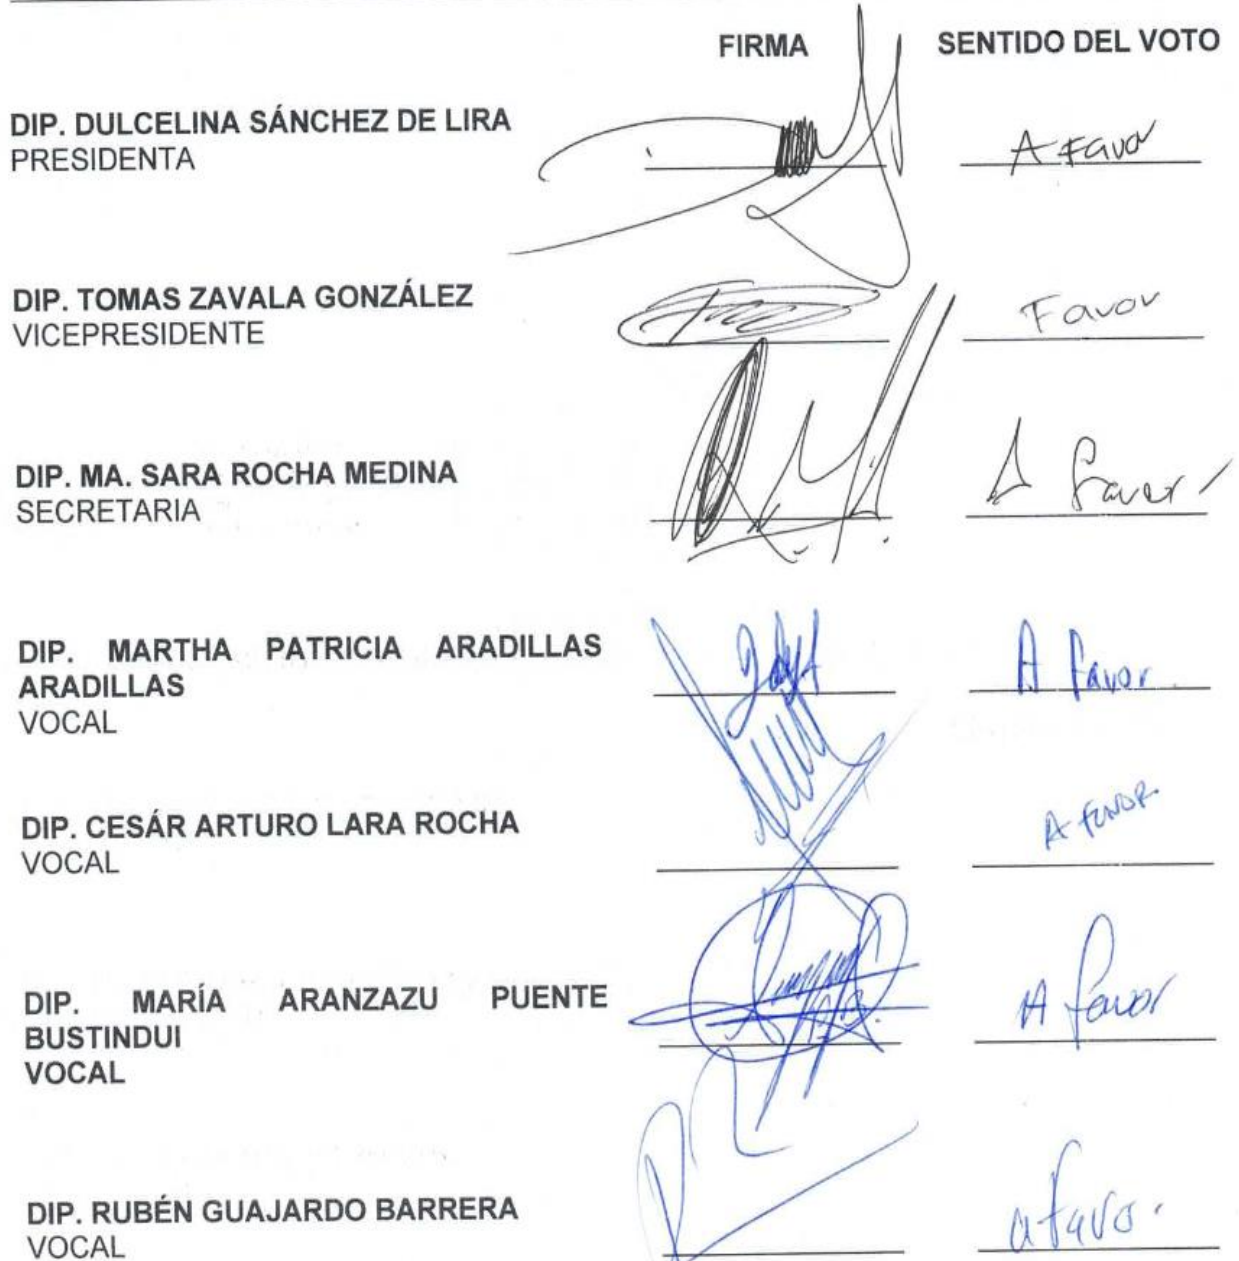 FIRMA SENTIDO DEL VOTO
DIP. DULCELINA SÁNCHEZ DE LIRA
PRESIDENTA
A Favor
DIP. TOMAS ZAVALA GONZÁLEZ
VICEPRESIDENTE
Favor
DIP. MA. SARA ROCHA MEDINA
SECRETARIA
A favor
DIP. MARTHA PATRICIA ARADILLAS
ARADILLAS
VOCAL
A favor.
DIP. CESÁR ARTURO LARA ROCHA
VOCAL
A FAVOR.
DIP. MARÍA ARANZAZU PUENTE
BUSTINDUI
VOCAL
A favor
DIP. RUBÉN GUAJARDO BARRERA
VOCAL
a favor.